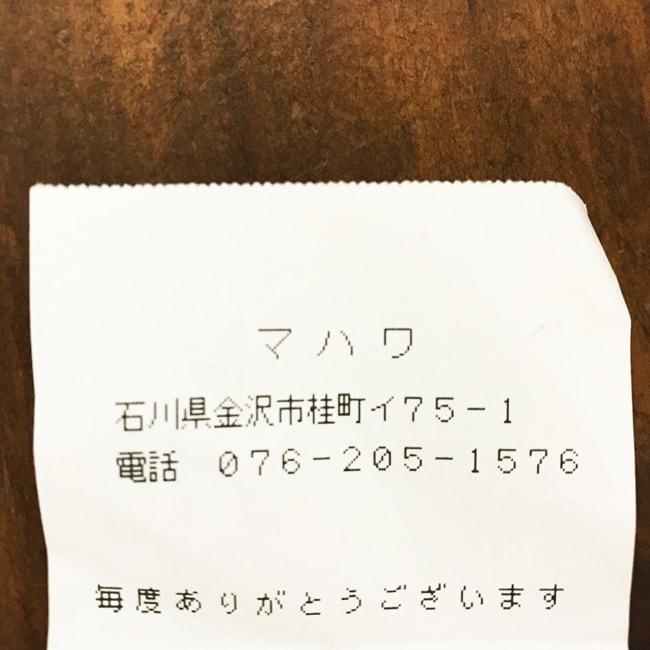 マハワ
石川県金沢市桂町イ75-1
電話 076-205-1576
毎度ありがとうございます